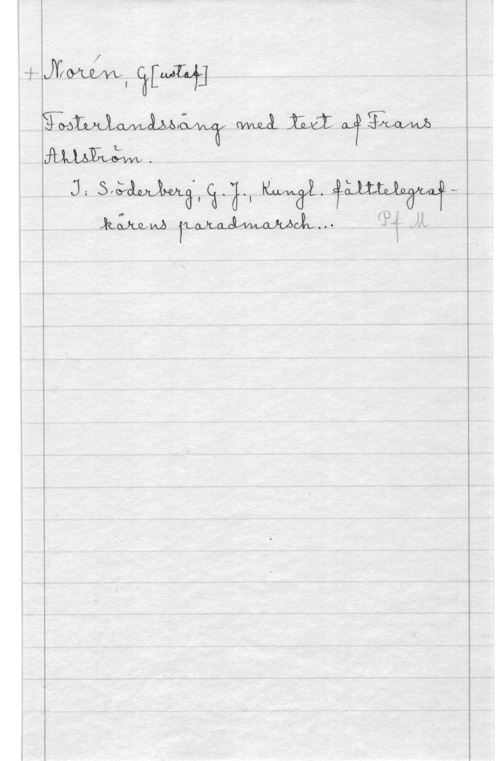 + Norén, G[ustaf]
Fosterlandssång med text af Frans
Ahlström.
I: Söderberg, G. J., Kungl. fälttelegraf-
kårens paradmarsch... Pf M